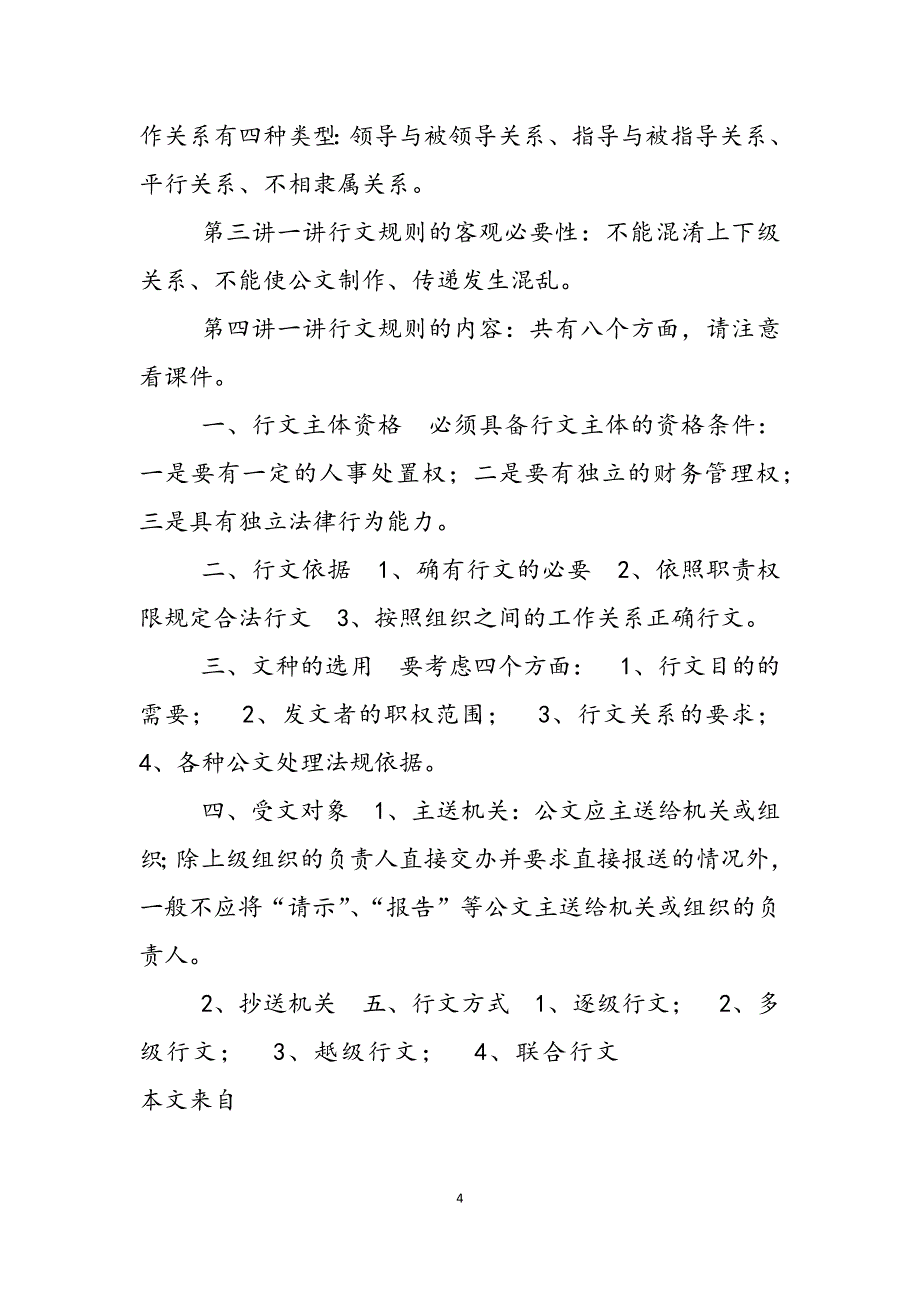 作关系有四种类型：领导与被领导关系、指导与被指导关系、
平行关系、不相隶属关系。
第三讲一讲行文规则的客观必要性：不能混淆上下级
关系、不能使公文制作、传递发生混乱。
第四讲一讲行文规则的内容：共有八个方面，请注意
看课件。
一、行文主体资格　必须具备行文主体的资格条件：
一是要有一定的人事处置权；二是要有独立的财务管理权；
三是具有独立法律行为能力。
二、行文依据　1、确有行文的必要　2、依照职责权
限规定合法行文　3、按照组织之间的工作关系正确行文。
三、文种的选用　要考虑四个方面：　1、行文目的的
需要；　2、发文者的职权范围；　3、行文关系的要求；
4、各种公文处理法规依据。
四、受文对象　1、主送机关：公文应主送给机关或组
织；除上级组织的负责人直接交办并要求直接报送的情况外，
一般不应将“请示”、“报告”等公文主送给机关或组织的负
责人。
2、抄送机关　五、行文方式　1、逐级行文；　2、多
级行文；　3、越级行文；　4、联合行文
本文来自
4